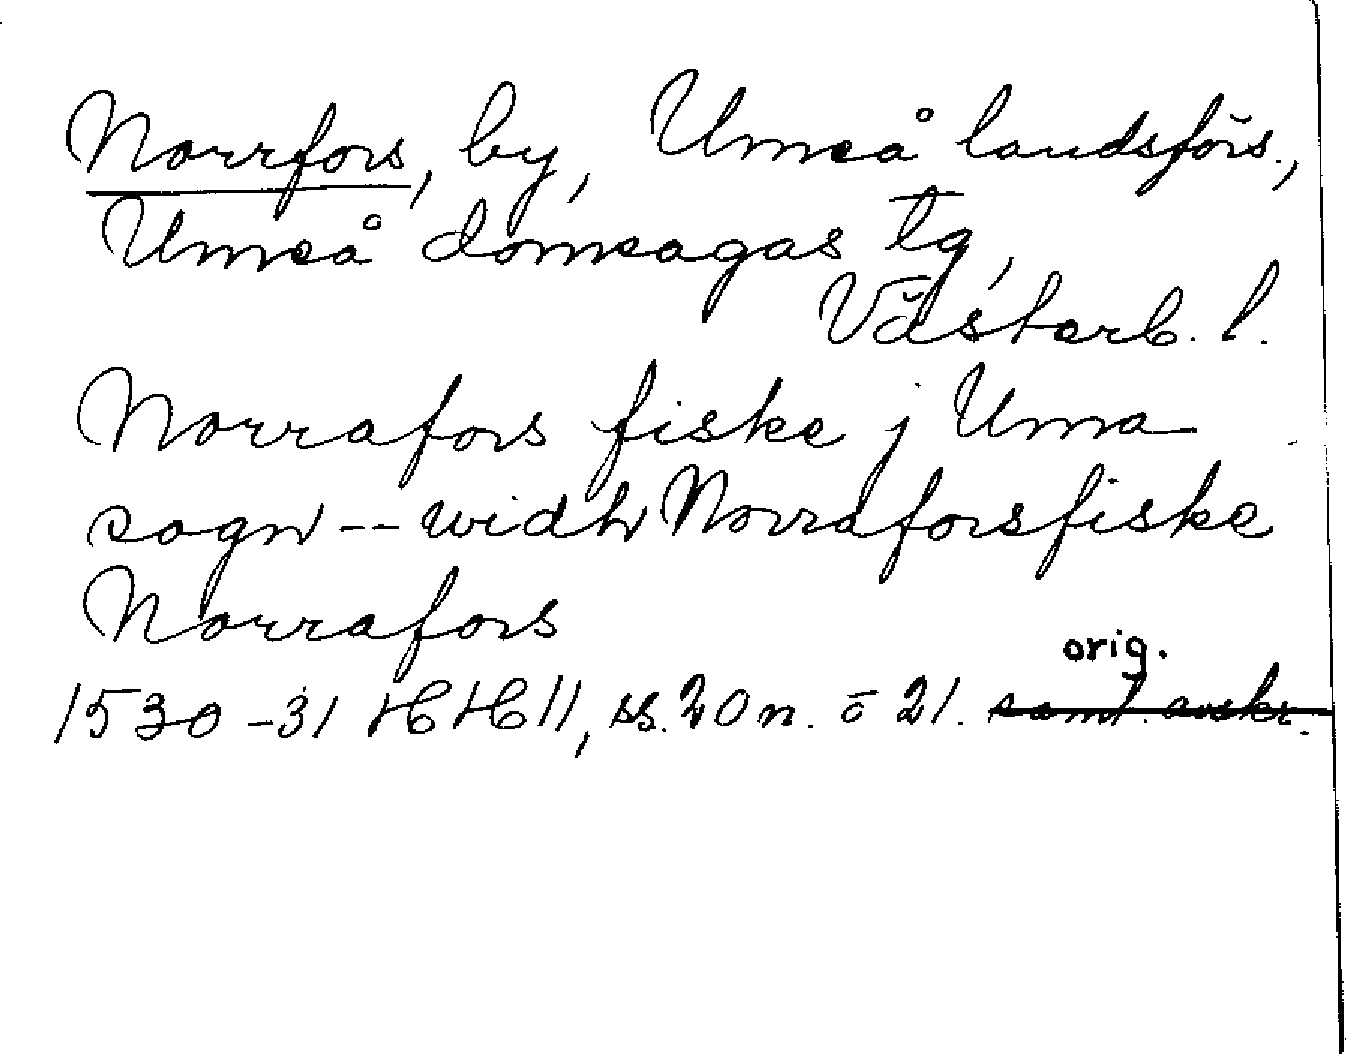 Norrfors, by, Umeå landsförs.,
Umeå domsagas tg,
Västerb. l.
Norrafors fiske j Uma
sogn -- widh Norraforsfiske
Norrafors
orig.
1530-31 HH 11, ss. 20 n. o 21. samt. avskr.